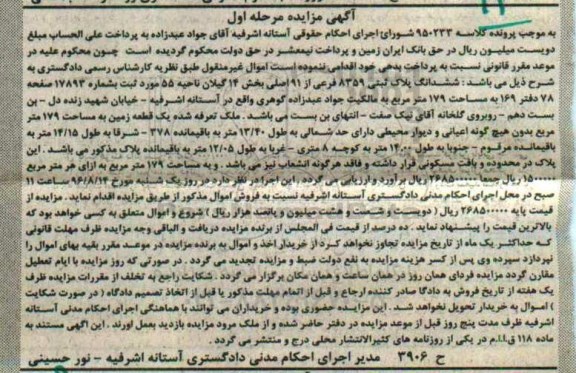 آگهی مزایده مرحله اول
به موجب پرونده کلاسه ۹۵۰۲۳۳ شورای اجرای احکام حقوقی آستانه اشرفیه آقای جواد عبدزاده به پرداخت علی الحساب مبلغ
دویست میلیون ریال در حق بانک ایران زمین و پرداخت نیمعشر در حق دولت محکوم گردیده است چون محکوم علیه در
موعد مقرر قانونی نسبت به پرداخت بدهی خود اقدامی ننموده است اموال غیرمنقول طبق نظریه کارشناس رسمی دادگستری به
شرح ذیل می باشد : ششدانگ پلاک ثبتی ۸۳۵۹ فرعی از ۹۱ اصلی بخش ۱۴ گیلان ناحیه ۵۵ مورد ثبت بشماره ۱۷۸۹۳ صفحه
۷۸ دفتر ۱۶۹ به مساحت ۱۷۹ متر مربع به مالکیت جواد عبدزاده گوهری واقع در آستانه اشرفیه - خیابان شهید زنده دل - بن
بست دهم - روبروی گلخانه آقای نیک صفت - انتهای بن بست می باشد . ملک تعرفه شده یک قطعه زمین به مساحت ۱۷۹ متر
مربع بدون هیچ گونه اعیانی و دیوار محیطی دارای حد شمالی به طول ۱۳/۴۰ متر به باقیمانده ۳۷۸ - شرقا به طول ۱۴/۱۵ متر به
باقیمانده مرقوم - جنوبا به طول ۱۴,۰۰ متر به کوچه ۸ متری - غربا به طول ۱۲/۰۵ متر به باقیمانده پلاک مذکور می باشد . این
پلاک در محدوده و بافت مسکونی قرار داشته و فاقد هرگونه انشعاب نیز می باشد . و به مساحت ۱۷۹ متر مربع به ازای هر متر مربع
۱۵۰۰۰۰۰ ریال جمعا ۲۶۸۵۰۰۰۰۰ ریال برآورد و ارزیابی می گردد . این اجرا در نظر دارد در روز یک شنبه مورخ ۹۶/۸/۱۴ ساعت ۱۱
صبح در محل اجرای احکام مدنی دادگستری آستانه اشرفیه نسبت به فروش اموال مذکور از طریق مزایده اقدام نماید . مزایده از
قیمت پایه ۲۶۸۵۰۰۰۰۰ ریال ( دویست و شصت و هشت میلیون و پانصد هزار ریال ) شروع و اموال متعلق به کسی خواهد بود که
بالاترین قیمت را پیشنهاد نماید . ده درصد از قیمت فی المجلس از برنده مزایده دریافت و الباقی وجه مزایده ظرف مهلت قانونی
که حداکثر یک ماه از تاریخ مزایده تجاوز نخواهد کرد از خریدار اخذ و اموال به برنده مزایده در موعد مقرر بقیه بهای اموال را
نپردازد سپرده وی پس از کسر هزینه مزایده به نفع دولت ضبط و مزایده تجدید می گردد . در صورتی که روز مزایده با ایام تعطیل
مقارن گردد مزایده فردای همان روز در همان ساعت و همان مکان برگزار می گردد . شکایت راجع به تخلف از مقررات مزایده ظرف
یک هفته از تاریخ فروش به دادگا صادر کننده ارجاع و قبل از اتمام مهلت مذکور یا قبل از اتخاذ تصمیم دادگاه ( در صورت شکایت
) اموال به خریدار تحویل نخواهد شد . این مزایده حضوری بوده و خریداران می توانند با هماهنگی اجرای احکام مدنی آستانه
اشرفیه ظرف مدت پنج روز قبل از موعد مزایده در دفتر حاضر شده و از ملک مورد مزایده بازدید بعمل آورند . این آگهی مستند به
ماده ۱۱۸ ق.ا.ا.م در یکی از روزنامه های کثیرالانتشار محلی درج و منتشر می گردد .
ح ۳۹۰۶ مدیر اجرای احکام مدنی دادگستری آستانه اشرفیه - نور حسینی